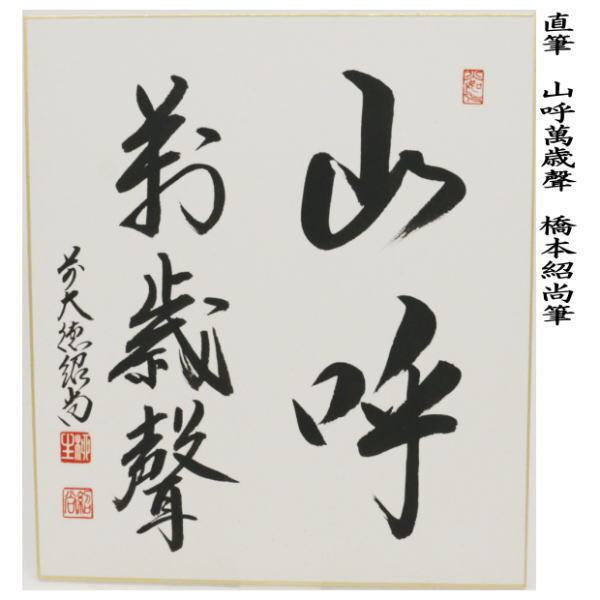 直筆 山呼萬歳聲 橋本紹尚筆
山呼
萬歳聲
前大徳紹尚
紹尚